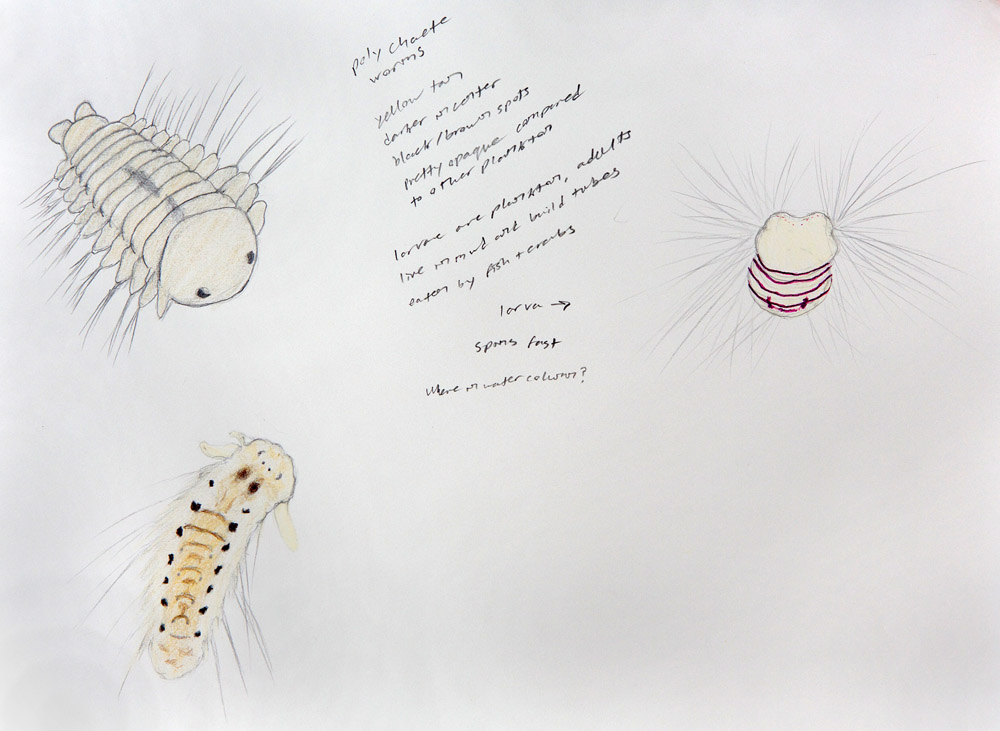 poly chaete
worms
yellow tan
darker in center
black/brown spots
pretty opaque compared
to other plankton
larvae are plankton, adults
live in mud and build tubes
eaten by fish + crabs
larva →
spins fast
where in water column?